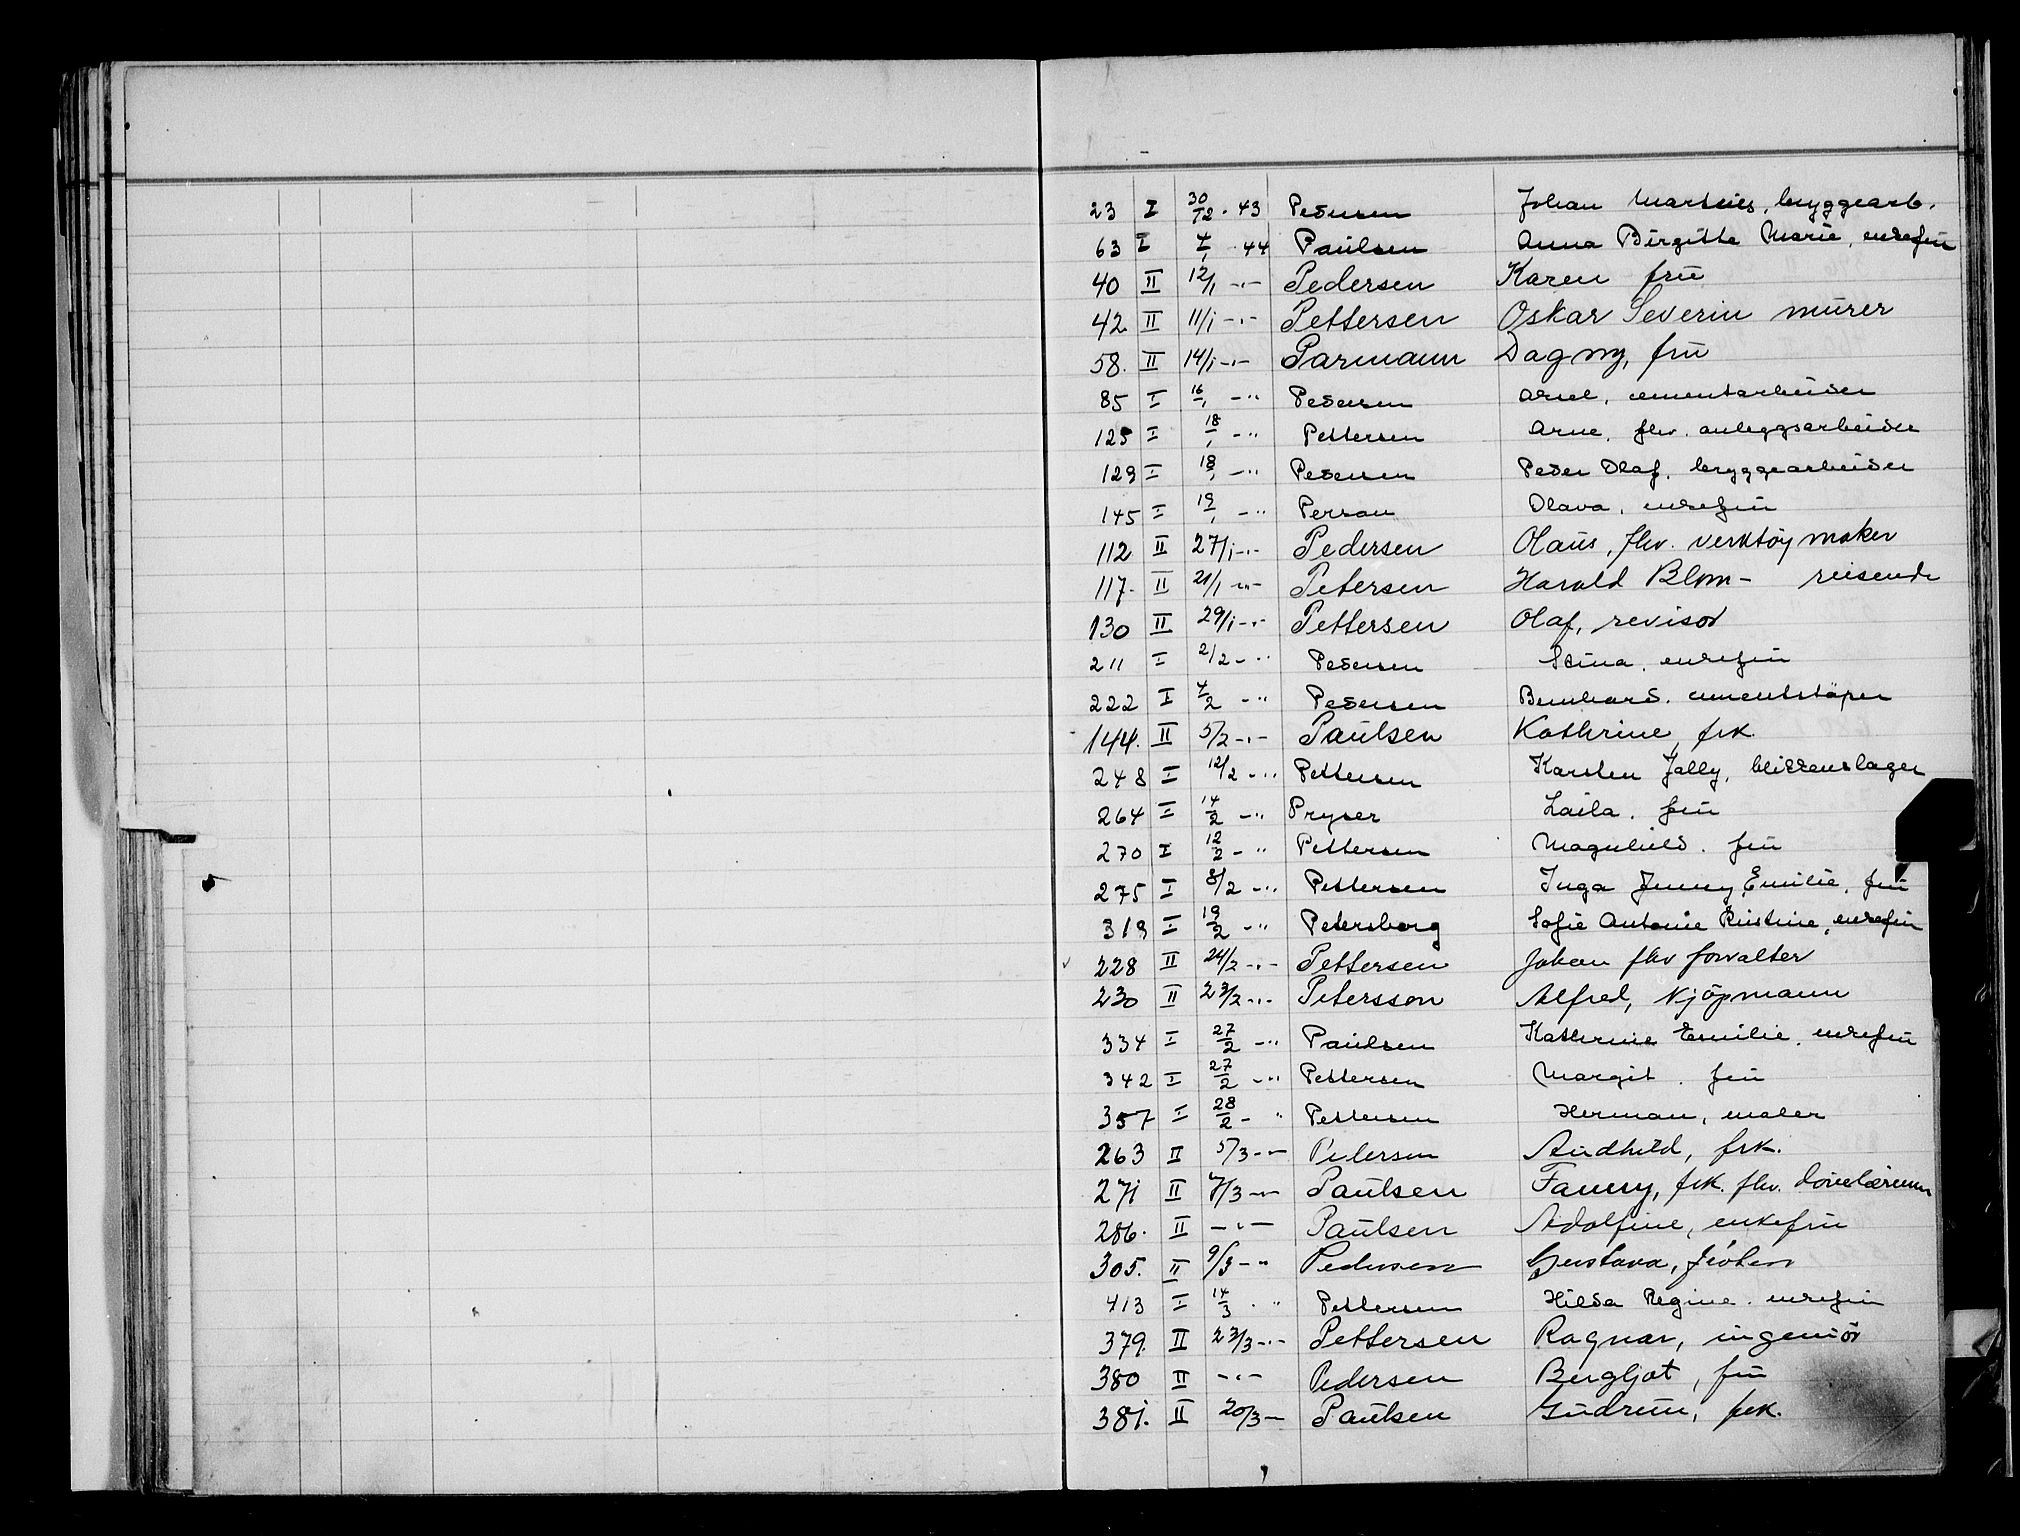 23 I 30/12 - 43 Pedersen Johan Marseies, bryggearb.
63 I 4/1 - 44 Paulsen Anna Birgitte Marie, enkefru
40 II 12/1 -"- Pedersen Karen fru
42 II 11/1 -"- Pettersen Oskar Severin murer
58. II 14/1 -"- Parmann Dagny, fru
85 I 16/1 -" Pedersen Arne, cementarbeider
125 I 18/1 -" Pettersen Arne, fhv. anleggsarbeider
129 I 18/1 -" Pedersen Peder Olaf, bryggearbeider
145 I 19/1 -" Persau Olava, enkefru
112 II 27/1 -"- Pedersen Olaus, fhv. verktøymaker
117. II 21/1 -"- Petersen Harald Blom - reisende
130 II 29/1 -"- Pettersen Olaf, revisor
211 I 2/2 -" Pedersen Stina, enkefru
222 I 4/2 -" Pedersen Bernhard, cementstøper
144. II 5/2 -"- Paulsen Kathrine, frk.
248 I 12/2 -" Pettersen Karsten Jally, blikkenslager
264 I 14/2 -" Pryser Laila, fru
270 I 12/2 -" Pettersen Magnhild, fru
275 I 8/2 -" Pettersen Inga Jenny Emilie, fru
319 I 19/2 -" Petersborg Sofie Antonie Kristine, enkefru
228 II 24/2 -"- Pettersen Johan fhv forvalter
230 II 23/2 -"- Petersson Alfred, kjøpmann
334 I 27/2 -" Paulsen Kathrine Emilie, enkefru
342 I 27/2 -" Pettersen Margit, fru
357 I 28/2 -" Pettersen Herman, maler
263 II 5/3 -- Pedersen Audhild, frk.
271 II 7/3 -"- Paulsen Fanny, frk. fhv.
286. II -"- Paulsen Adolfine, enkefru
305. II 9/3 -" Pedersen Gustava, frøken
413 I 14/3 -" Pettersen Hilda Regine, enkefru
379. II 23/3 -"- Pettersen Ragnar, ingeniør
380 II -"- Pedersen Bergljot, fru
381. II 20/3 - Paulsen Gudrun, frk.